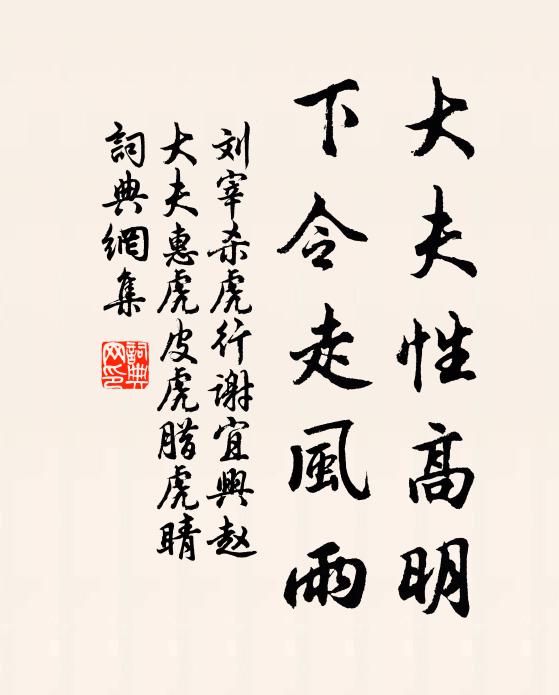 大夫性高明
下令走風雨
刘宰杀虎行谢宜興赵
大夫惠虎皮虎腊虎睛
詞典網集
詞典
网印